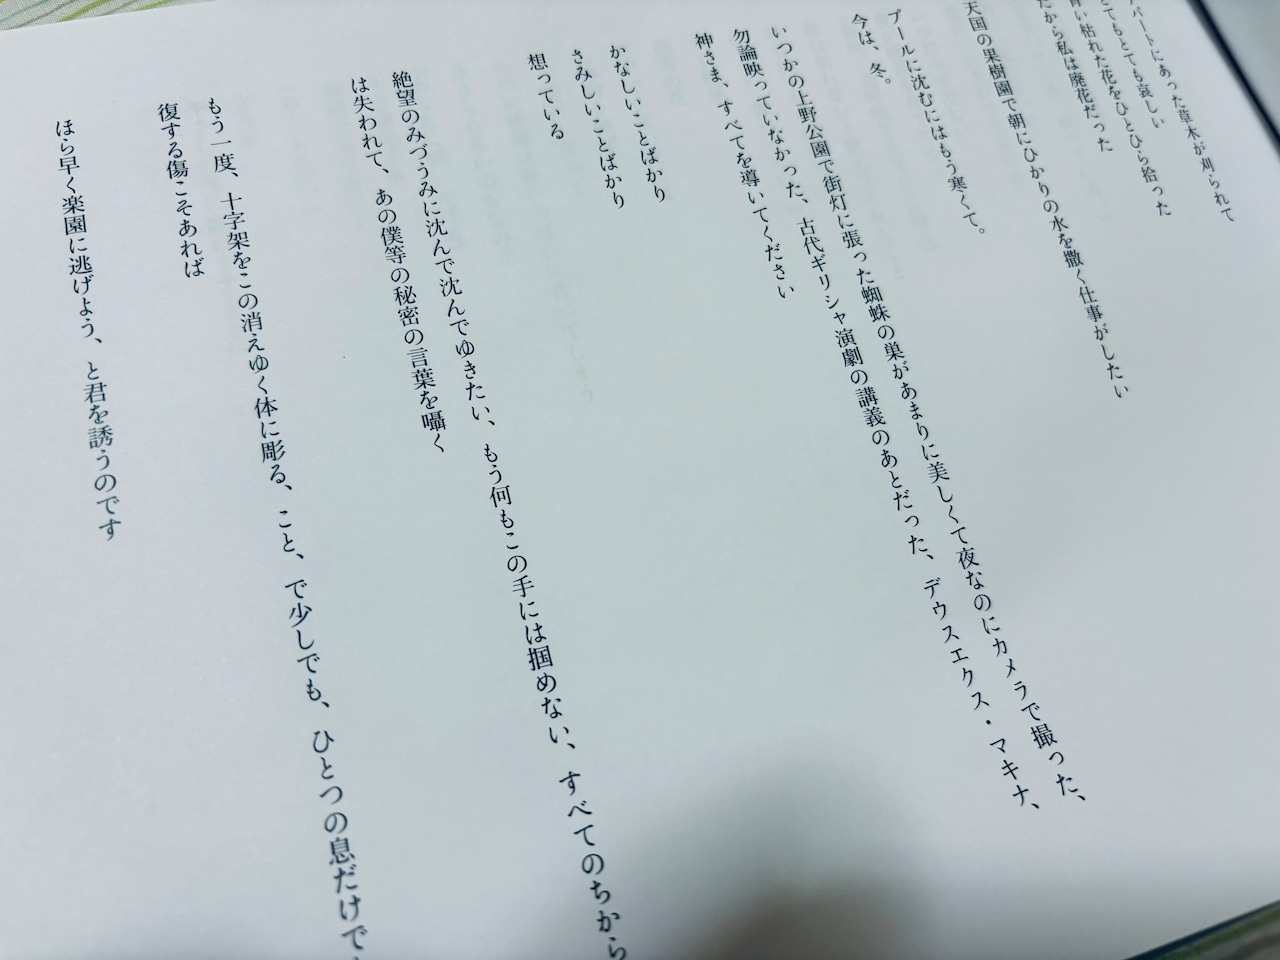 パートにあった草木が刈られて
とてもとても哀しい
枯れた花をひとひら拾った
だから私は廃花だった
天国の果樹園で朝にひかりの水を撒く仕事がしたい
プールに沈むにはもう寒くて。
今は、冬。
いつかの上野公園で街灯に張った蜘蛛の巣があまりに美しくて夜なのにカメラで撮った、
勿論映っていなかった、古代ギリシャ演劇の講義のあとだった、デウスエクス・マキナ、
神さま、すべてを導いてください
かなしいことばかり
さみしいことばかり
想っている
絶望のみづうみに沈んで沈んでゆきたい、もう何もこの手には掴めない、すべてのちから
は失われて、あの僕等の秘密の言葉を囁く
もう一度、十字架をこの消えゆく体に彫る、こと、で少しでも、ひとつの息だけで
復する傷こそあれば
ほら早く楽園に逃げよう、と君を誘うのです